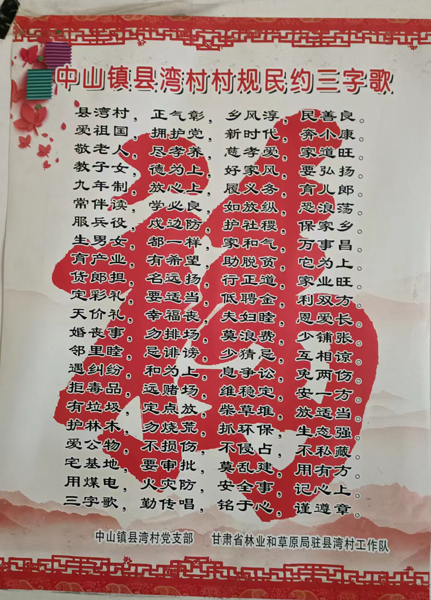 中山镇县湾村村规民约三字歌
县湾村，正气彰，乡风淳，民善良。
爱祖国，拥护党，新时代，奔小康。
敬老人，尽孝养，慈孝爱，家道旺。
教子女，德为上，好家风，要弘扬。
九年制，放心上，履义务，育儿郎。
常伴读，学必良，如放纵，恐浪荡。
服兵役，戍边防，护社稷，保家乡。
生男女，都一样，家和气，万事昌。
育产业，有希望，助脱贫，它为上。
贷郎担，名远扬，行正道，家业旺。
定彩礼，要适当，低聘金，利双方。
天价礼，幸福丧，夫妇睦，恩爱长。
婚丧事，勿排场，莫浪费，少铺张。
邻里睦，忌诽谤，少猜忌，互相谅。
遇纠纷，和为上，息争讼，免两伤。
拒毒品，远赌场，维稳定，安一方。
有垃圾，定点放，柴草堆，放适当。
护林木，勿烧荒，抓环保，生态强。
爱公物，不损伤，不侵占，不私藏。
宅基地，要审批，莫乱建，用有方。
用煤电，火灾防，安全事，记心上。
三字歌，勤传唱，铭于心，谨遵章。
中山镇县湾村党支部 甘肃省林业和草原局驻县湾村工作队